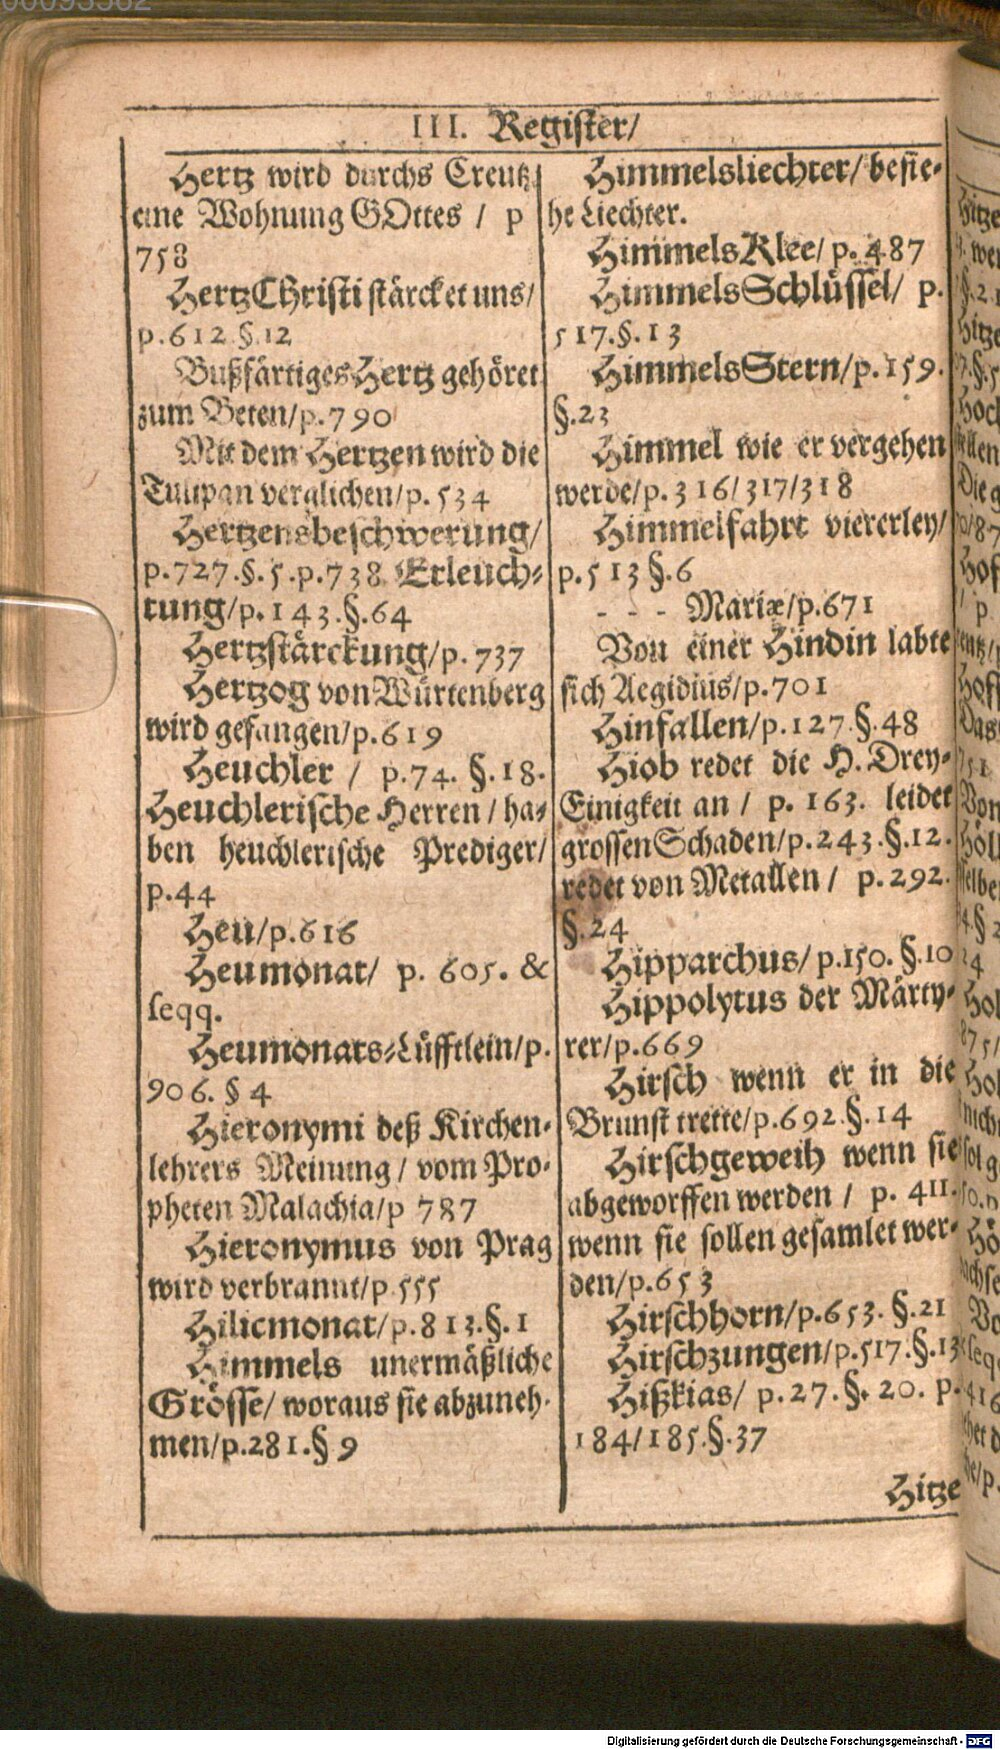 III. Register/
Hertz wird durchs Creutz
eine Wohnung GOttes / p
758
Hertz CHristi stärcket uns/
p.612 §.12
Bußfärtiges Hertz gehöret
zum Beten/p.790
Mit dem Hertzen wird die
Tulipan verglichen/p.534
Hertzensbeschwerung/
p.727.§.5.p.738 Erleuch-
tung/p.143.§.64
Hertzstärckung/p.737
Hertzog von Würtenberg
wird gefangen/p.619
Heuchler / p.74. §.18.
Heuchlerische Herren / ha-
ben heuchlerische Prediger/
p.44
Heu/p.616
Heumonat/ p. 605. &
seqq.
Heumonats-Lüfftlein/p.
906. § 4
Hieronymi deß Kirchen-
lehrers Meinung / vom Pro-
pheten Malachia/p 787
Hieronymus von Prag
wird verbrannt/p.555
Hilicmonat/p.813.§.1
Himmels unermäßliche
Grösse/ woraus sie abzuneh-
men/p.281.§ 9
Himmelsliechter/ besie-
he Liechter.
HimmelsKlee/ p. 487
HimmelsSchlüssel/ p.
517.§.13
HimmelsStern/p.159.
§.23
Himmel wie er vergehen
werde/p.316/317/318
Himmelfahrt viererley/
p.513 §.6
- - - Mariæ/p.671
Von einer Hindin labte
sich Aegidius/p.701
Hinfallen/p.127.§.48
Hiob redet die H. Drey-
Einigkeit an / p. 163. leidet
grossen Schaden/p.243.§.12.
redet von Metallen / p.292.
§.24
Hipparchus/p.150. §.10
Hippolytus der Märty-
rer/p.669
Hirsch wenn er in die
Brunst trette/p.692.§.14
Hirschgeweih wenn sie
abgeworffen werden / p. 411.
wenn sie sollen gesamlet wer-
den/p.653
Hirschhorn/p.653. §.21
Hirschzungen/p.517.§.13
Hißkias/ p.27.§. 20. p.
184/185.§.37
Hitze
Digitalisierung gefördert durch die Deutsche Forschungsgemeinschaft - DFG